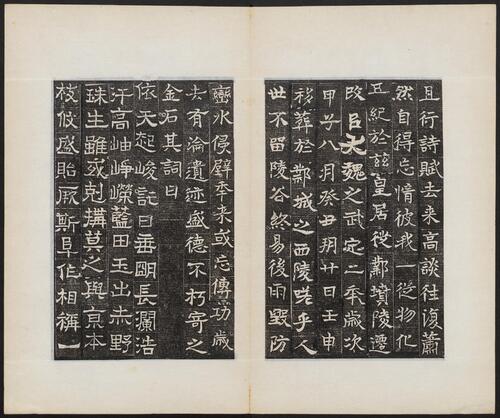 且行詩賦去来高談往復蕭
然自得忘情彼我一從物化
五紀於茲皇居徙鄴墳陵遷
改㠯大魏之武定二年歲次
甲子八月癸丑朔廿日壬申
移葬於鄴城之西陵嗟乎人
世不留陵谷終易後雨毀防
巒水侵壁年来或忘傳功歲
去有淪遺迹盛德不朽寄之
金石其詞曰
依天起峻託日垂明長瀾浩
汗高岫崢嶸藍田玉出赤野
珠生雖或剋搆莫之與京本
枝攸盛貽厥斯早作相稱一